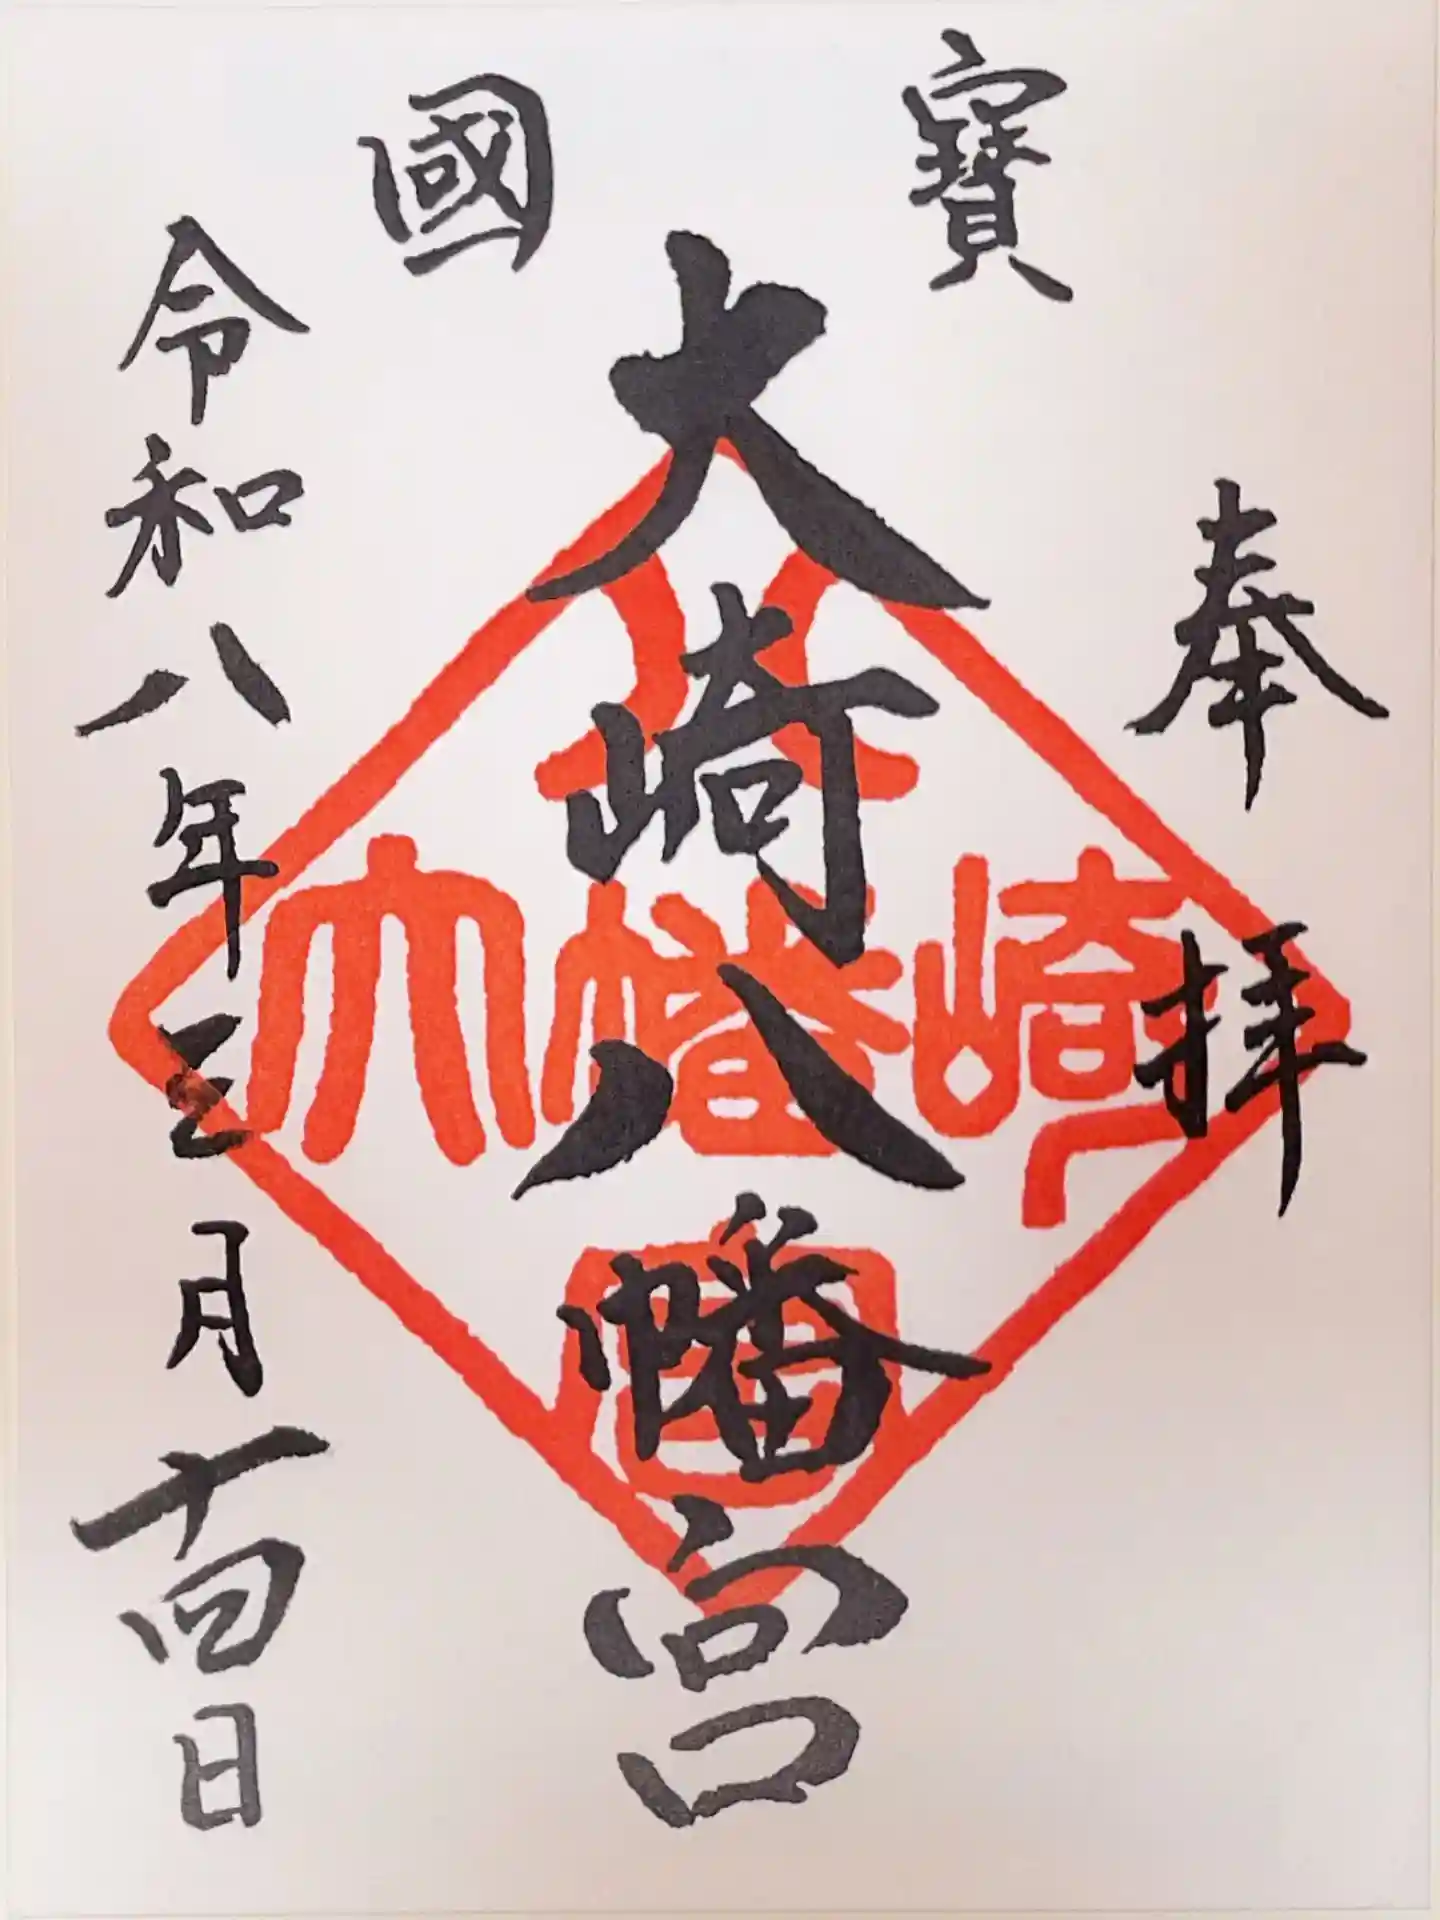 奉拝
國寶
大崎八幡宮
令和八年三月十四日
八
大幡崎
宮